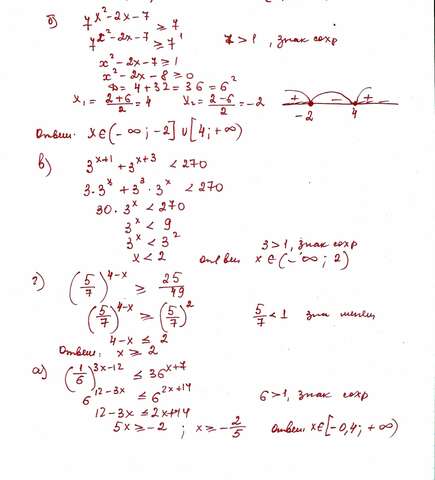 б) 7^(x²-2x-7) ≥ 7
7^(x²-2x-7) ≥ 7¹ 7 > 1, знак сохр
x²-2x-7 ≥ 1
x²-2x-8 ≥ 0
D = 4+32 = 36 = 6²
x₁ = (2+6)/2 = 4 x₂ = (2-6)/2 = -2 + -2 - 4 +
Ответ: x ∈ (-∞; -2] ∪ [4; +∞)
в) 3^(x+1) + 3^(x+3) < 270
3·3^x + 3³·3^x < 270
30·3^x < 270
3^x < 9
3^x < 3² 3 > 1, знак сохр
x < 2 ответ x ∈ (-∞; 2)
г) (5/7)^(4-x) ≥ 25/49
(5/7)^(4-x) ≥ (5/7)² 5/7 < 1 зна меняем
4-x ≤ 2
Ответ: x ≥ 2
а) (1/6)^(3x-12) ≤ 36^(x+7)
6^(12-3x) ≤ 6^(2x+14) 6 > 1, знак сохр
12-3x ≤ 2x+14
5x ≥ -2 ; x ≥ -2/5 ответ x ∈ [-0,4; +∞)